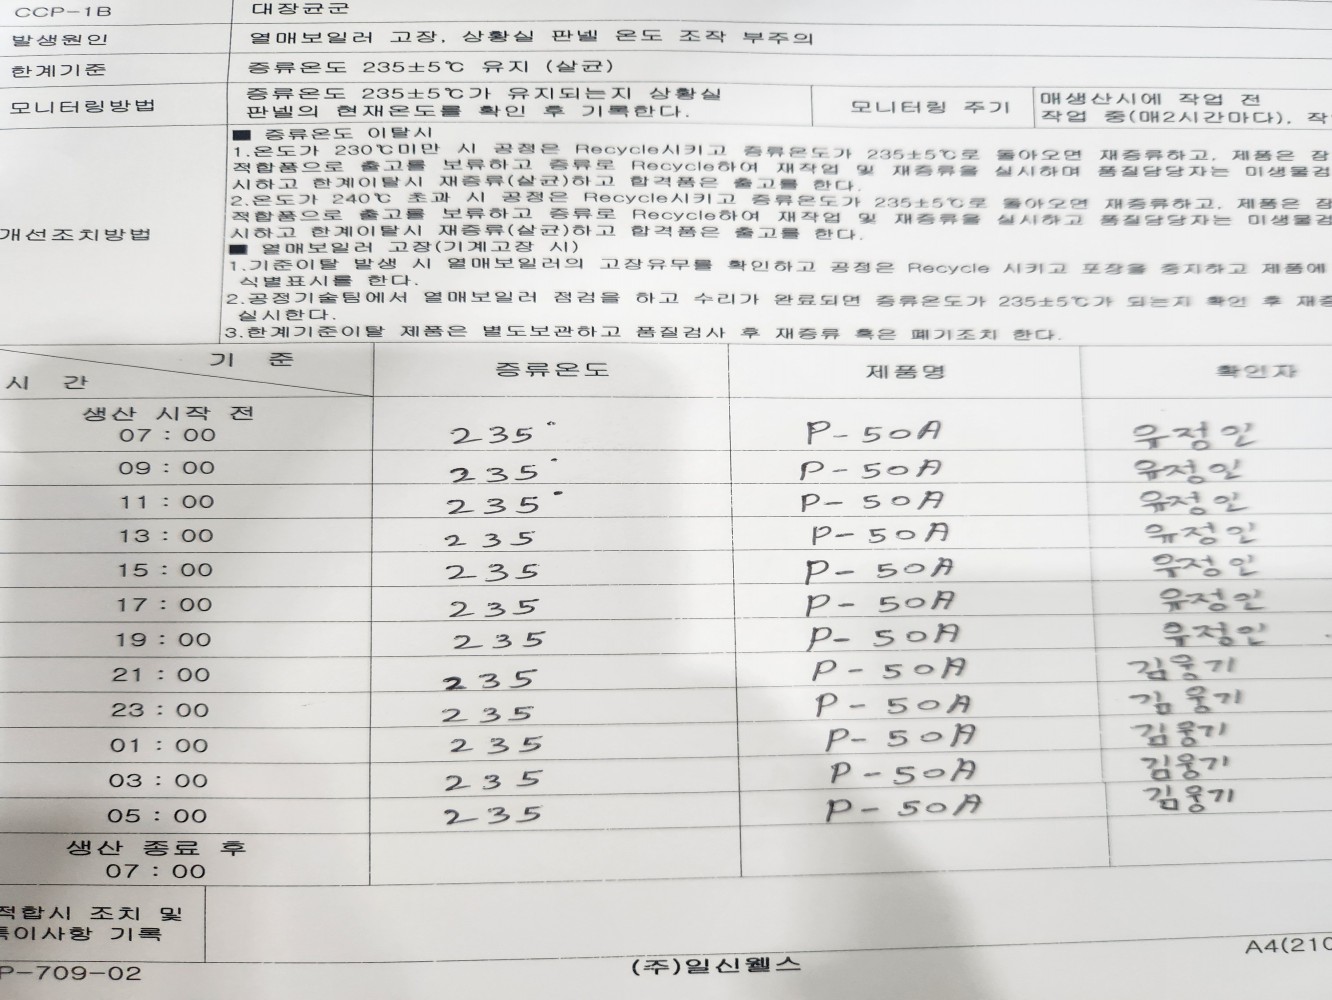 CCP-1B 대장균군
발생원인 열매보일러 고장, 상황실 판넬 온도 조작 부주의
한계기준 증류온도 235±5℃ 유지 (살균)
모니터링방법 증류온도 235±5℃가 유지되는지 상황실
판넬의 현재온도를 확인 후 기록한다.
모니터링 주기 매생산시에 작업 전
작업 중(매2시간마다), 작
개선조치방법
■ 증류온도 이탈시
1.온도가 230℃미만 시 공정은 Recycle시키고 증류온도가 235±5℃로 돌아오면 재증류하고, 제품은 잠
적합품으로 출고를 보류하고 증류로 Recycle하여 재작업 및 재증류을 실시하며 품질담당자는 미생물검
시하고 한계이탈시 재증류(살균)하고 합격품은 출고를 한다.
2.온도가 240℃ 초과 시 공정은 Recycle시키고 증류온도가 235±5℃로 돌아오면 재증류하고, 제품은 잠
적합품으로 출고를 보류하고 증류로 Recycle하여 재작업 및 재증류을 실시하고 품질담당자는 미생물검
시하고 한계이탈시 재증류(살균)하고 합격품은 출고를 한다.
■ 열매보일러 고장(기계고장 시)
1.기준이탈 발생 시 열매보일러의 고장유무를 확인하고 공정은 Recycle 시키고 포장을 중지하고 제품에
식별표시를 한다.
2.공정기술팀에서 열매보일러 점검을 하고 수리가 완료되면 증류온도가 235±5℃가 되는지 확인 후 재증
실시한다.
3.한계기준이탈 제품은 별도보관하고 품질검사 후 재증류 혹은 폐기조치 한다.
기 준
시 간 증류온도 제품명 확인자
생산 시작 전
07 : 00 235° P-50A 유정인
09 : 00 235° P-50A 유정인
11 : 00 235° P-50A 유정인
13 : 00 235 P-50A 유정인
15 : 00 235 P-50A 유정인
17 : 00 235 P-50A 유정인
19 : 00 235 P-50A 유정인
21 : 00 235 P-50A 김웅기
23 : 00 235 P-50A 김웅기
01 : 00 235 P-50A 김웅기
03 : 00 235 P-50A 김웅기
05 : 00 235 P-50A 김웅기
생산 종료 후
07 : 00
적합시 조치 및
특이사항 기록
P-709-02 (주)일신웰스 A4(210